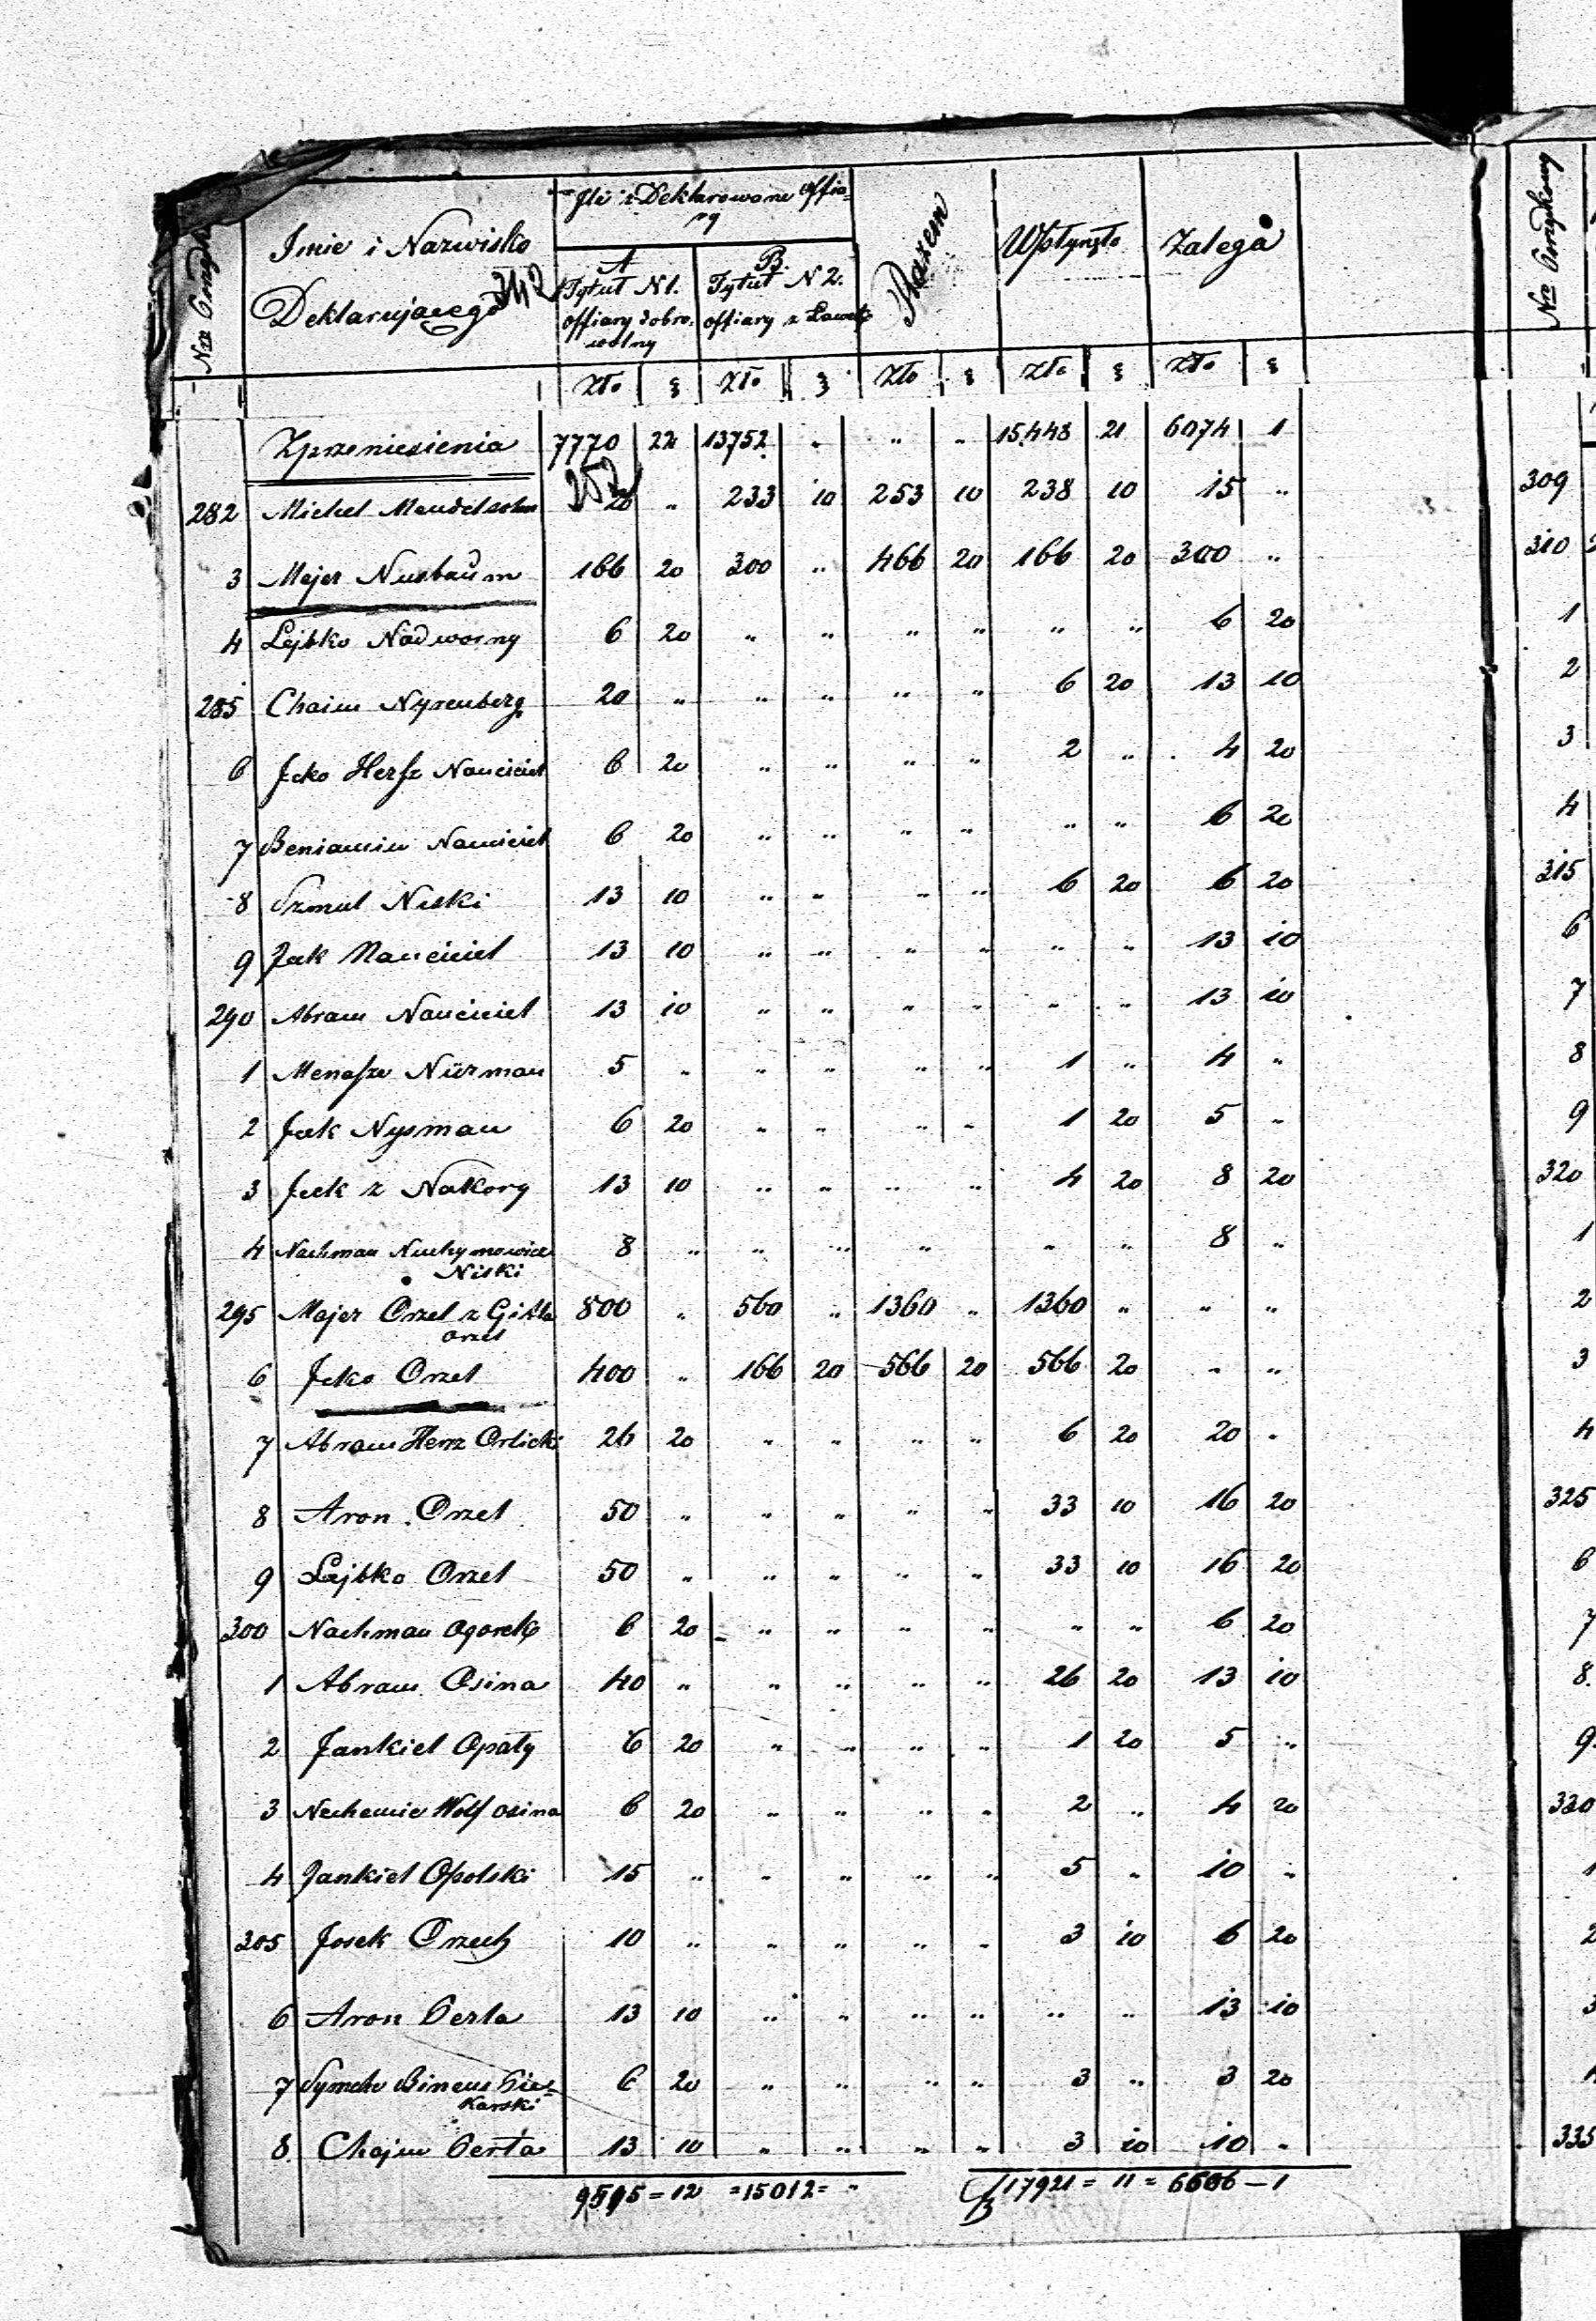 Imie i Nazwisko Deklarującego
342
Ile zDeklarowane offiary
A Tytuł N 1. offiary dobrowolny
B. Tytuł N 2. offiary z
Razem
Wpłynęło
Zalega
Zło g Zło g Zło g Zło g Zło g
Zprzeniesienia 7770 22 13752 " " " 15448 21 6074 1
252
282 Michel Mendelsohn 20 " 233 10 253 10 238 10 15 "
3 Mejer Nusbaum 166 20 300 " 466 20 166 20 300 "
4 Lejbko Nadworny 6 20 " " " " " " 6 20
285 Chaim Nyrenberg 20 " " " " " 6 20 13 10
6 Icko Hersz Nauciciel 6 20 " " " " 2 " 4 20
7 Beniamin Nauciciel 6 20 " " " " " " 6 20
8 Szmul Niski 13 10 " " " " 6 20 6 20
9 Icek Nauciciel 13 10 " " " " " " 13 10
290 Abram Nauciciel 13 10 " " " " " " 13 10
1 Menasze Nürman 5 " " " " " 1 " 4 "
2 Icek Nysman 6 20 " " " " 1 20 5 "
3 Icek z Nakory 13 10 " " " " 4 20 8 20
4 Nachman Nuchymowicz Niski 8 " " " " " " 8 "
295 Majer Orzel z Gitla Orzel 800 " 560 " 1360 " 1360 " " "
6 Icko Orzel 400 " 166 20 566 20 566 20 " "
7 Abram Hersz Orlicki 26 20 " " " " 6 20 20 "
8 Aron Orzel 50 " " " " " 33 10 16 20
9 Lejbko Orzel 50 " " " " " 33 10 16 20
300 Nachman Ogorek 6 20 " " " " " " 6 20
1 Abram Osina 40 " " " " " 26 20 13 10
2 Jankiel Opaty 6 20 " " " " 1 20 5 "
3 Nechemie Wolf Osina 6 20 " " " " 2 " 4 20
4 Jankiel Opolski 15 " " " " " 5 " 10 "
305 Josek Orzech 10 " " " " " 3 10 6 20
6 Aron Perla 13 10 " " " " " " 13 10
7 Symcho Bineus Piekarski 6 20 " " " " 3 " 3 20
8 Chajm Perła 13 10 " " " " 3 10 10 "
9595 = 12 = 15012 = " 17921 = 11 = 6606 – 1
309
310
1
2
3
4
315
6
7
8
9
320
1
2
3
4
325
6
7
8.
9.
330
1
2
3
335